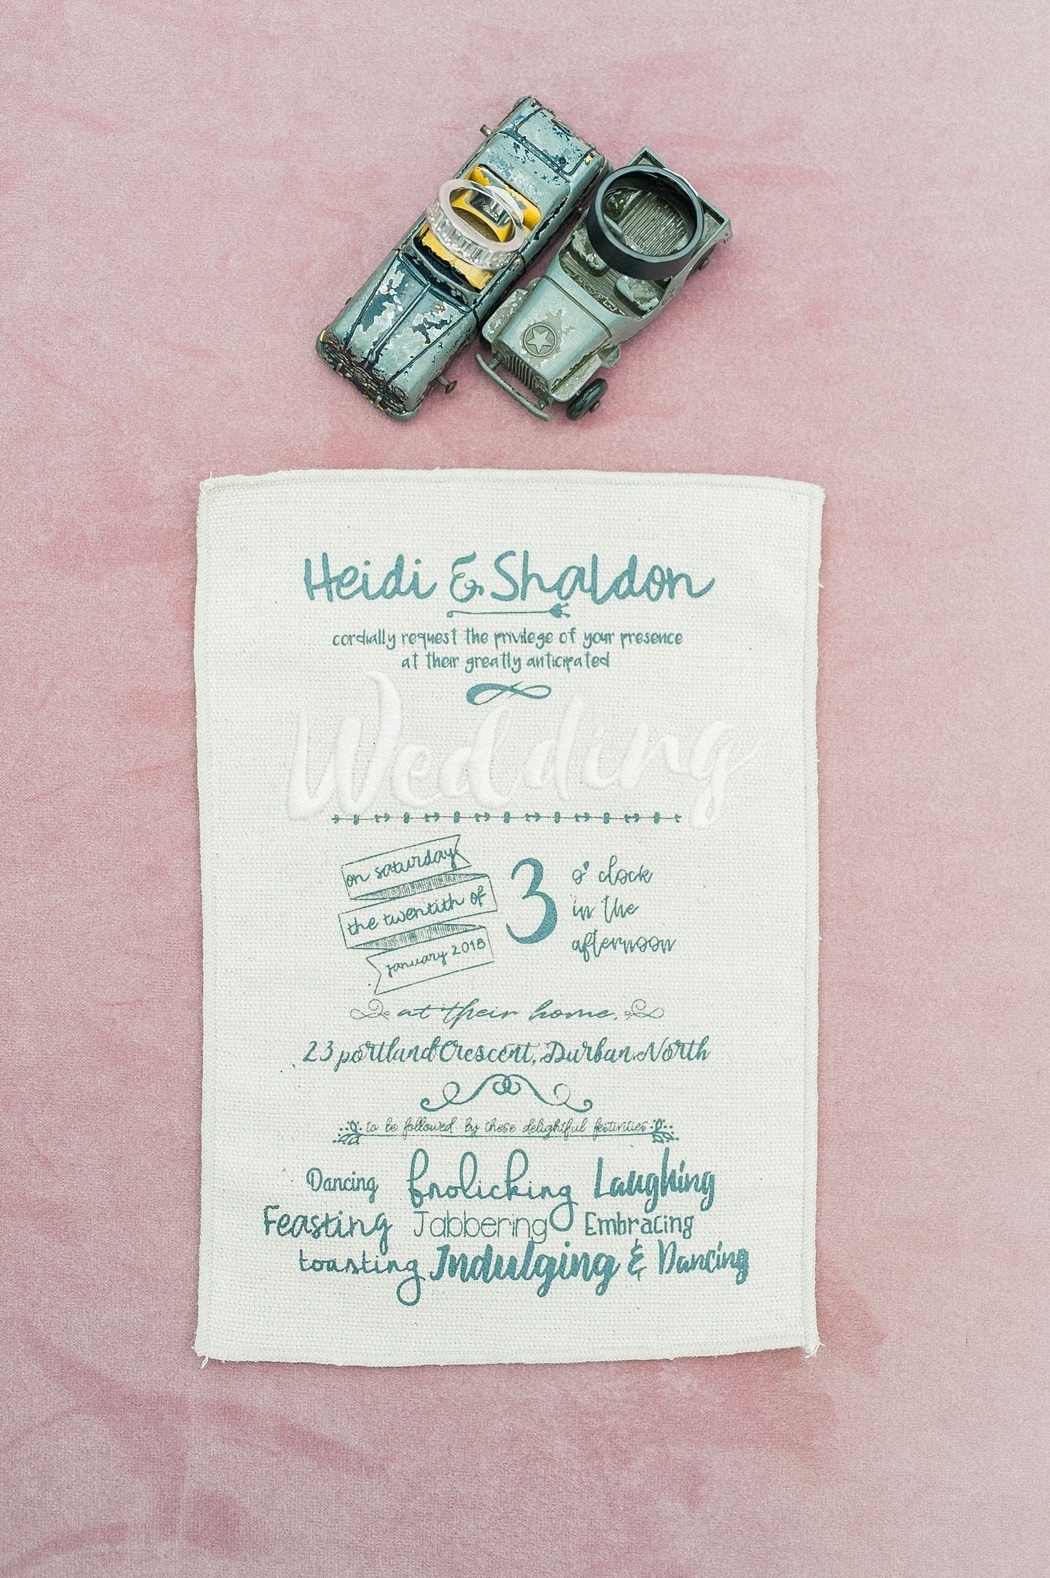 Heidi & Shaldon
cordially request the privilege of your presence
at their greatly anticipated
Wedding
on saturday
the twentith of
january 2018
3
o' clock
in the
afternoon
at their home,
23 portland Crescent, Durban North
to be followed by these delightful festivities
Dancing frolicking Laughing
Feasting Jabbering Embracing
toasting Indulging & Dancing